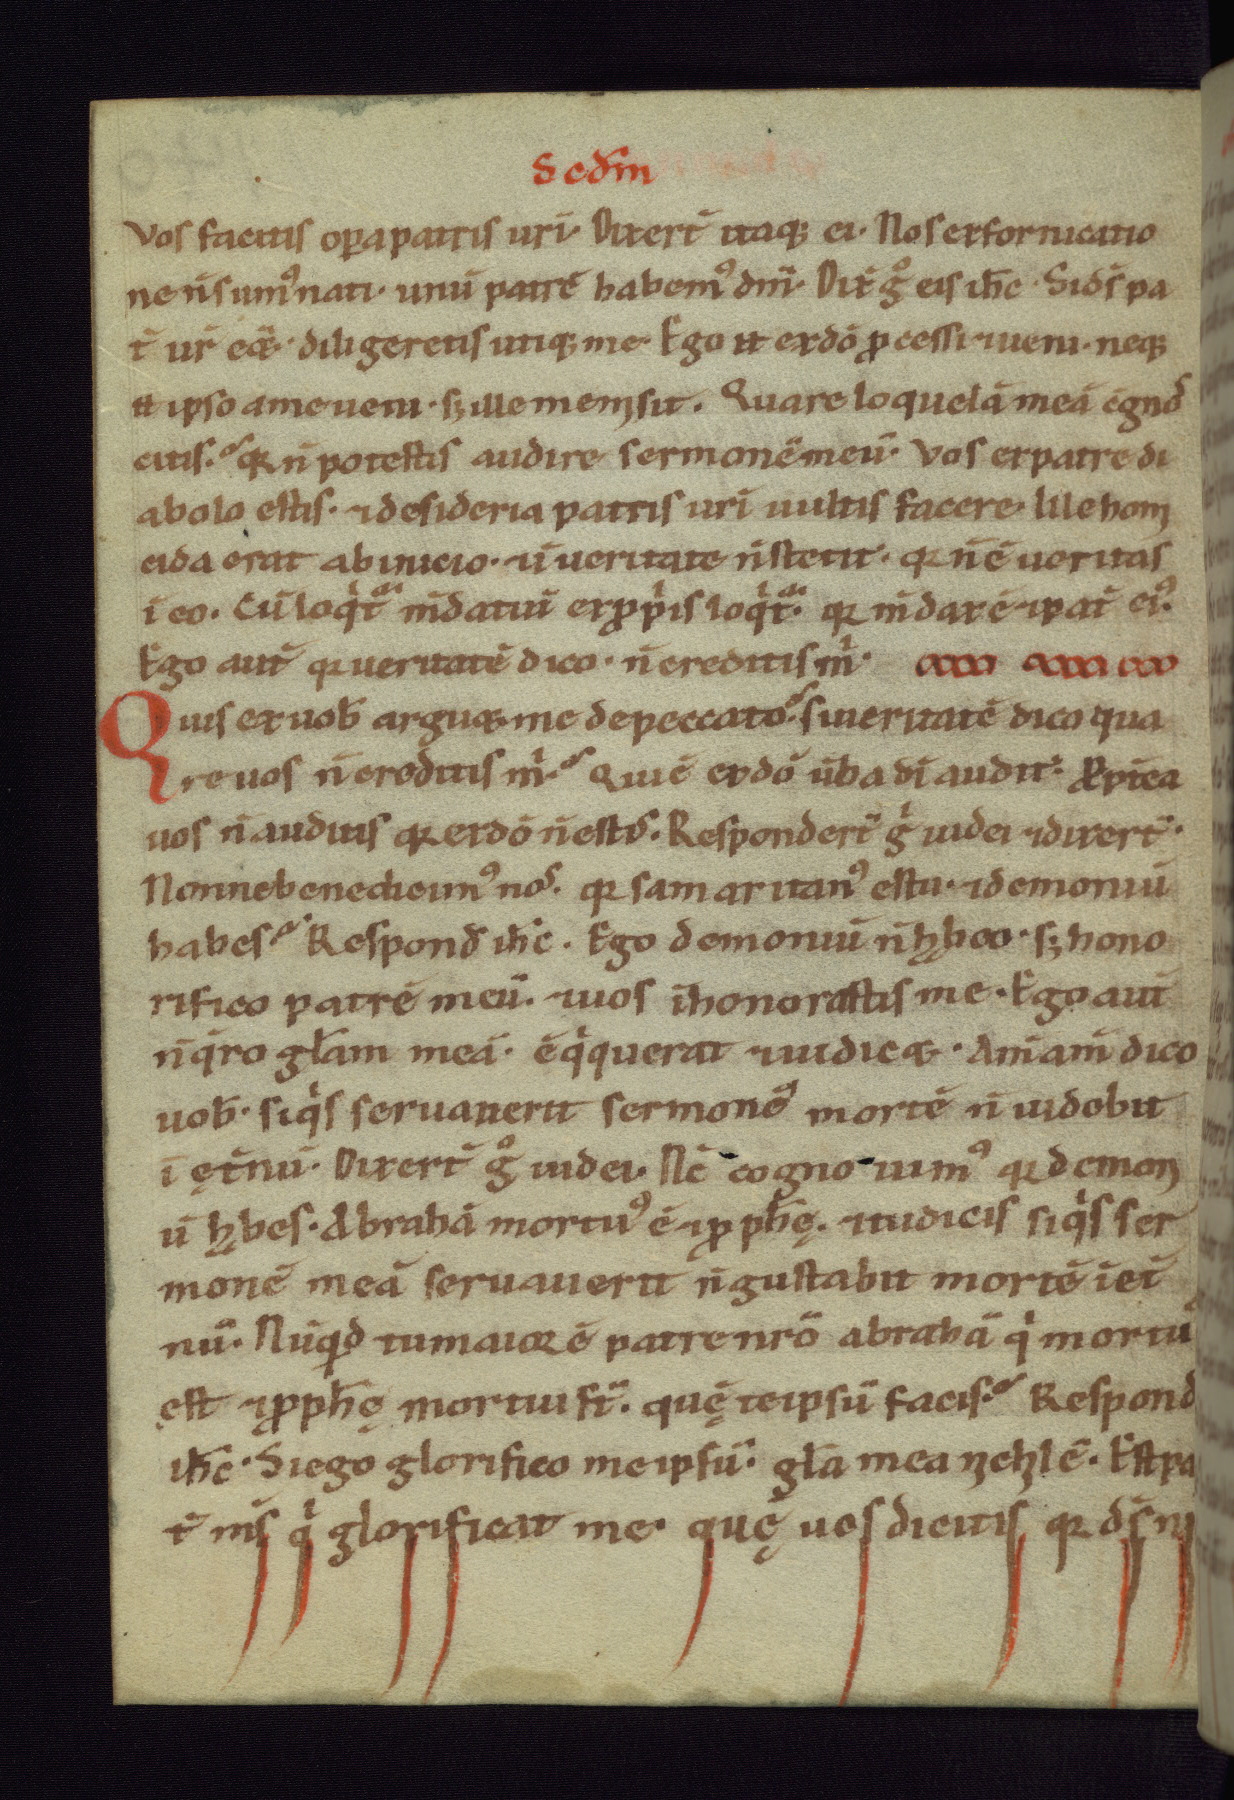 Scdm
vos facitis opa patris uri. Dixert̄ itaq; ei. Nos ex fornicatio
ne n̄ sumꝰ nati. unū patrē habemꝰ dm̄. Dix̄ gͦ eis ihc̄. Si ds̄ pa
t̄ ur̄ eēt. diligeretis utiq; me. Ego  ex dō ꝓcessi ⁊ ueni. neq;
 ipso a me ueni. sꝫ ille me misit. Quare loquelā meā  n̄ gnos
citis. qꝛ n̄ potestis audire sermonē meū. Vos ex patre di
abolo estis. ⁊ desideria patris uri uultis facere. Ille homi
cida erat ab inicio. ⁊ ī ueritate n̄ stetit. qꝛ n̄ ē ueritas
ī eo. Cū loqͥt̄ m̄datiū ex ꝓpͥis loqͥt̄. qꝛ m̄dax ē ⁊ pat̄ eiꝰ.
Ego aut̄ qꝛ ueritatē dico. n̄ creditis mͥ.
Quis ex uob̄ arguet me de peccato. si ueritatē dico qua
re uos n̄ creditis mͥ. Qui ē ex dō ūba di audit. Ꝓpt̄ea
uos n̄ auditis qꝛ ex dō n̄ estis. Respondert̄ gͦ iudei ⁊ dixert̄.
Nonne bene dicimꝰ nos. qꝛ samaritanꝰ es tu. ⁊ demoniū
habes. Respond̄ ihc̄. Ego demoniū n̄ hꝫbeo. sꝫ hono
rifico patrē meū. ⁊ uos īhonorastis me. Ego aut̄
n̄ qͥro glam̄ meā. ē qͥ querat ⁊ iudicet. Am̄ am̄ dico
uob̄. siqͥs seruauerit sermonē mortē n̄ uidebit
ī ęt̄nū. Dixert̄ gͦ iudei. Nc̄ cognouimꝰ qꝛ demoni
ū hꝫbes. Abrahā mortuꝰ ē ⁊ ꝓph̄ę. ⁊ tu dicis siqͥs ser
monē meā seruauerit n̄ gustabit mortē ī et̄
nū. Nūqͥd tu maior ē patre nr̄o abrahā qͥ mortuꝰ
est ⁊ ꝓph̄ę mortui st̄. quę te ipsū facis. Respond̄
ihc̄. Si ego glorifico me ipsū. gla mea nichl̄ ē. Est pa
t̄ ms̄ qͥ glorificat me. quę uos dicitis qꝛ ds̄